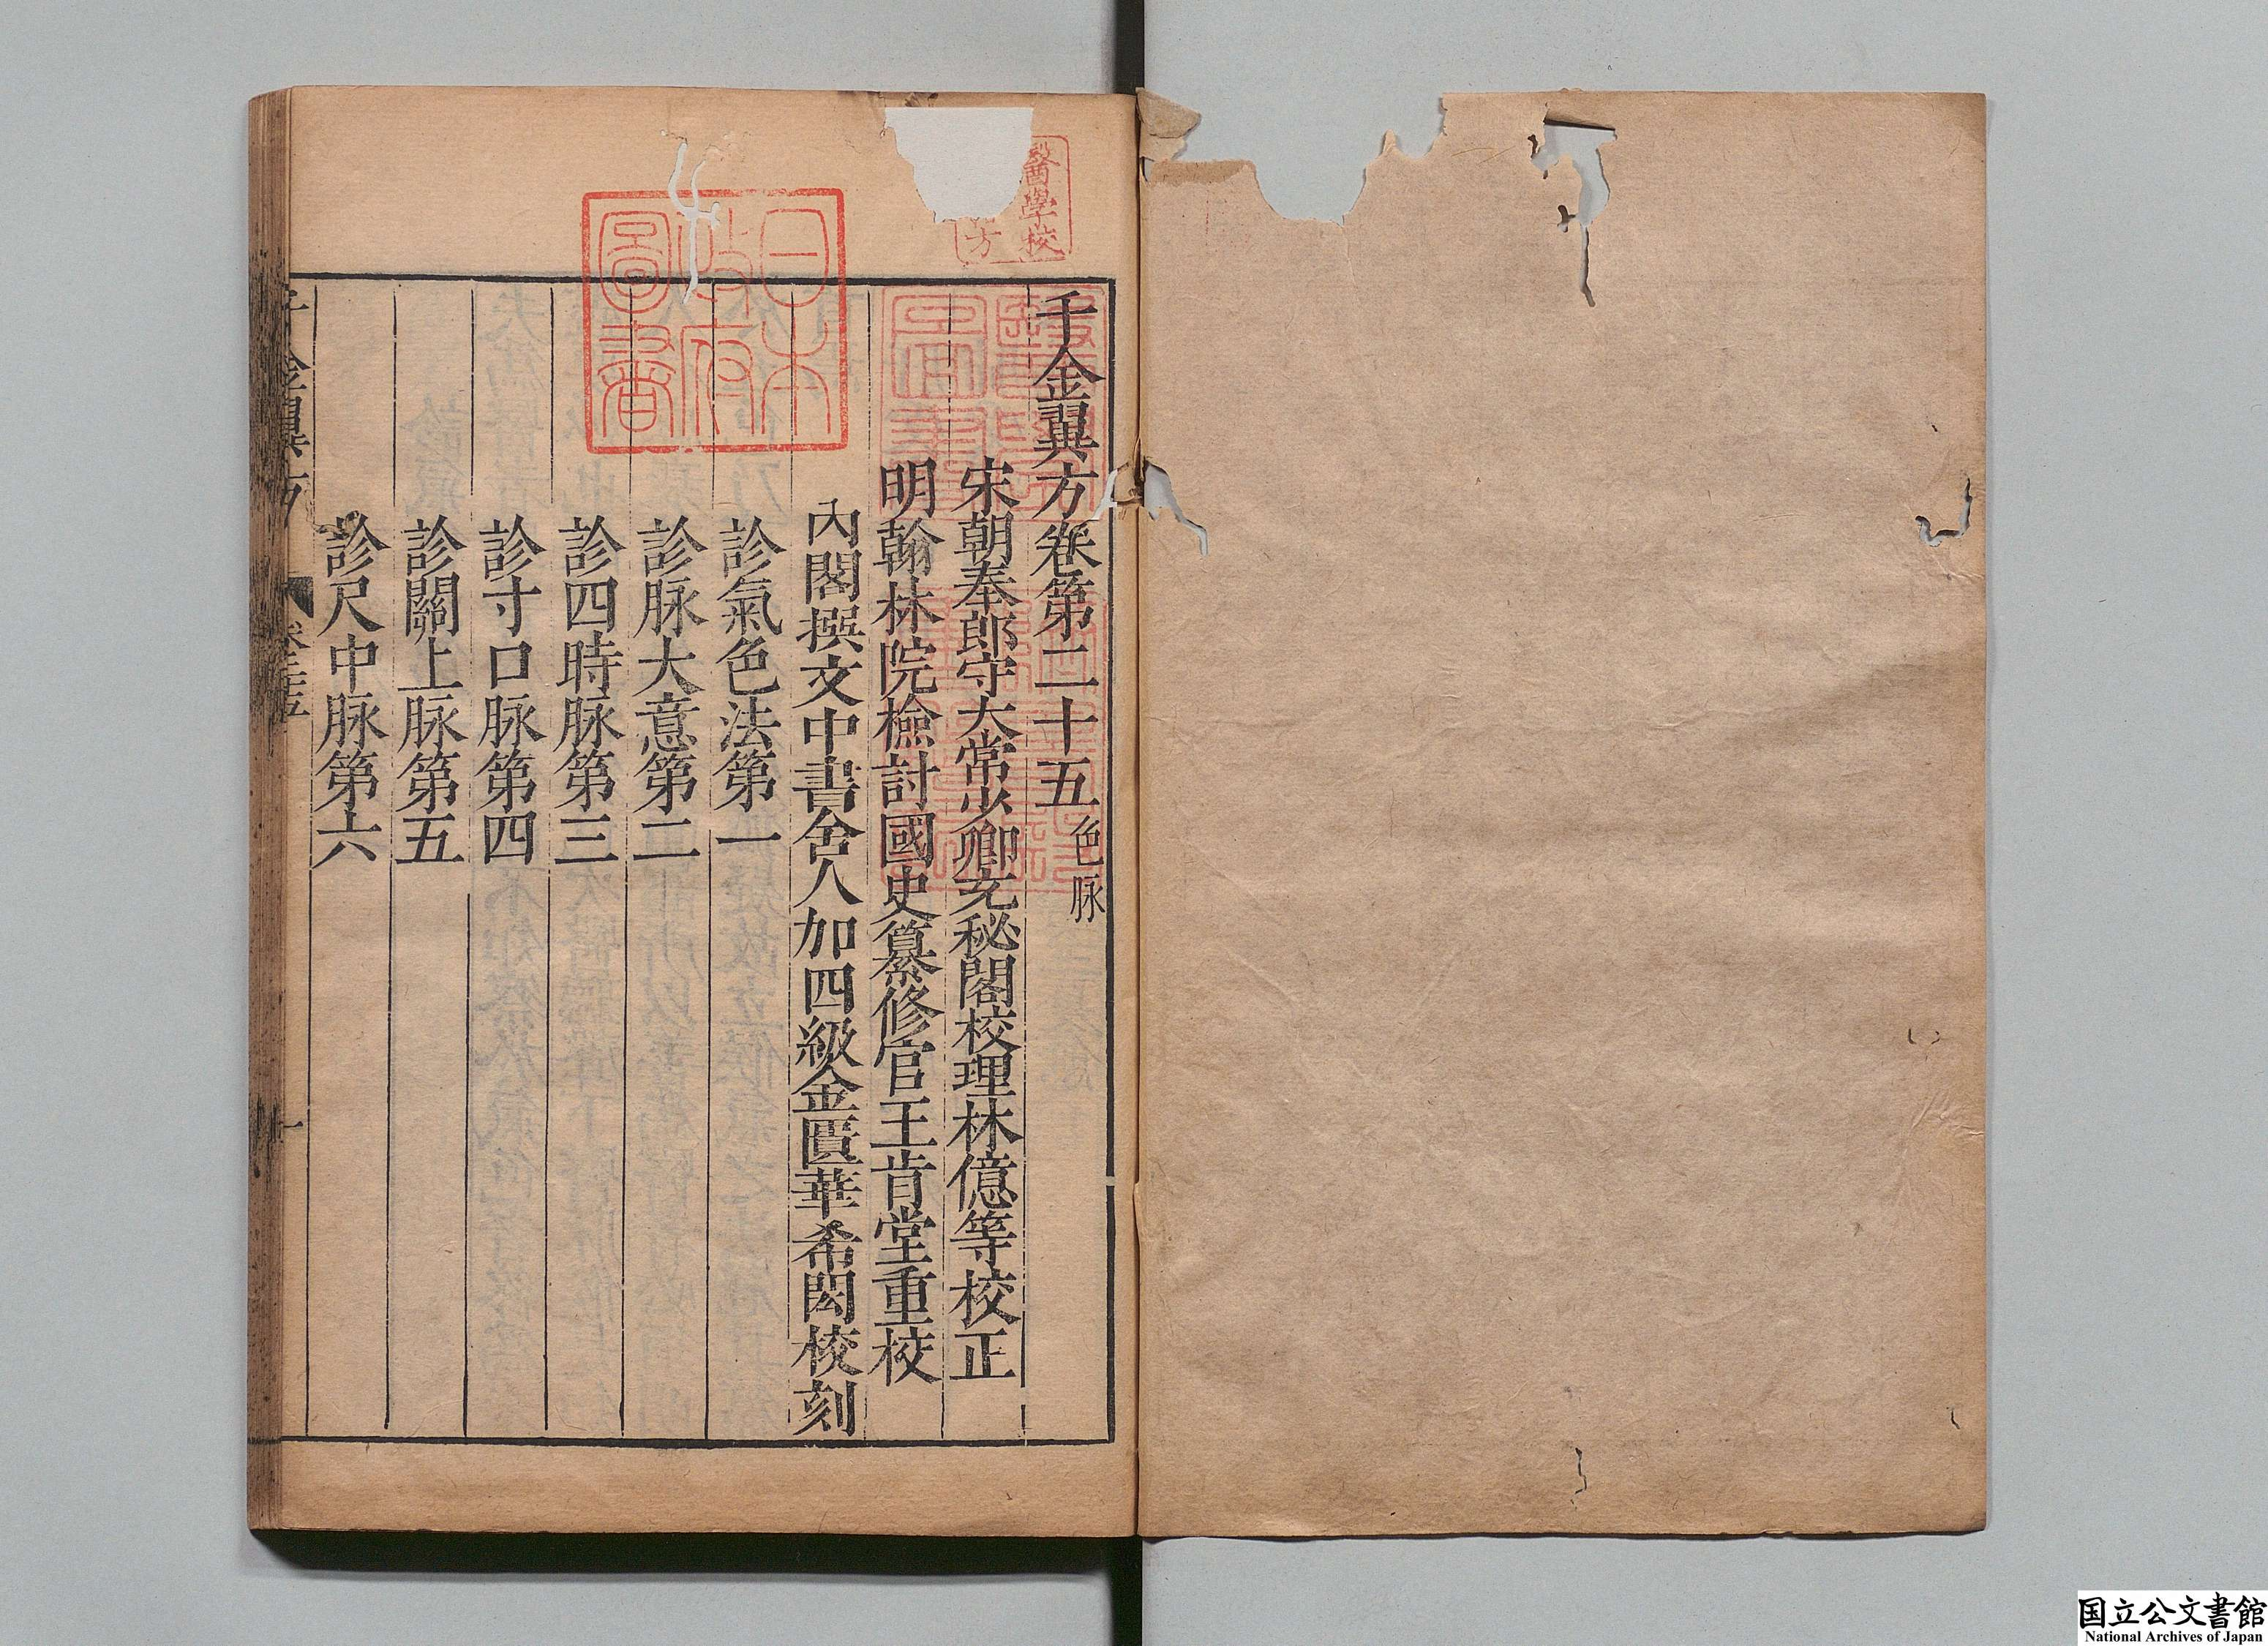 千金翼方卷第二十五色脉
宋朝奉郎守太常少卿充秘閣校理林億等校正
明翰林院檢討國史纂修官王肯堂重校
內閣撰文中書舍人加四級金匱華希閎校刻
診氣色法第一
診脉大意第二
診四時脉第三
診寸口脉第四
診關上脉第五
診尺中脉第六
千金翼方
卷二十五
一
醫學校
方
日本
政府
圖書
国立公文書館
National Archives of Japan